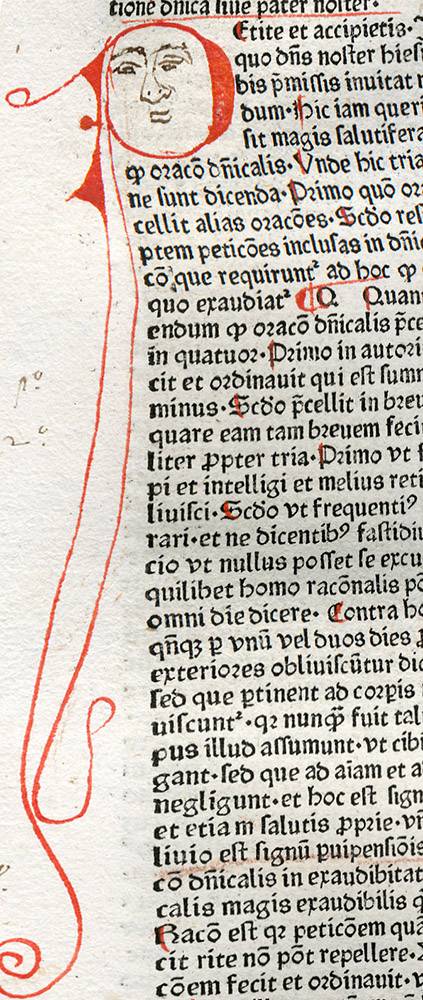 tione dñica siue pater noster·
Etite et accipietis·
quo dñs noster hies
bis p̄missis inuitat
dum·Hic iam queri
sit magis salutifera
ꝙ oracō dñicalis·Vnde hic tria
ne sunt dicenda·Primo quō or
cellit alias oracōes·Scdo res
ptem peticōes inclusas in dñi
cō que requirunt² ad hoc ꝙ
quo exaudiat² Q Quan
endum ꝙ oracō dñicalis p̄ce
in quatuor·Primo in autori
cit et ordinauit qui est sum
minus·Scdo p̄cellit in breu
pº
quare eam tam breuem feci
2º
liter ꝓpter tria·Primo vt f
pi et intelligi et melius reti
liuisci·Scdo vt frequentiꝰ
rari·et ne dicentibꝰ fastidiu
cio vt nullus posset se excu
quilibet homo racōnalis po
omni die dicere· Contra ho
qñqꝫ ꝑ vnū vel duos dies
exteriores obliuiscūtur dic
sed que ꝑtinent ad corpis
uiscunt²·qꝛ nunqꝫ̄ fuit tali
pus illud assumunt·vt cibi
gant·sed que ad aīam et a
negligunt·et hoc est sign
et etia m salutis ꝓprie·vñ
liuio est signū puipensiōis
cō dñicalis in exaudibitat
calis magis exaudibilis q̄
Racō est qꝛ peticōem quā
cit rite nō pōt repellere·
cōem fecit et ordinauit·v